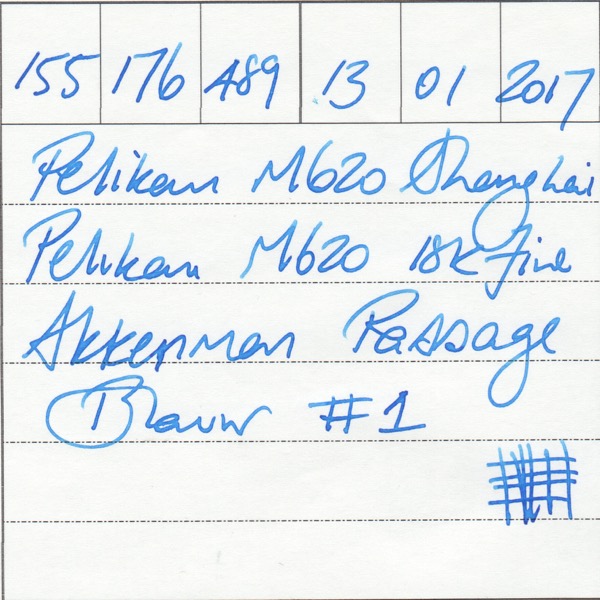 155 176 489 13 01 2017
Pelikan M620 Shanghai
Pelikan M620 18K fine
Akkerman Passage
Blauw #1